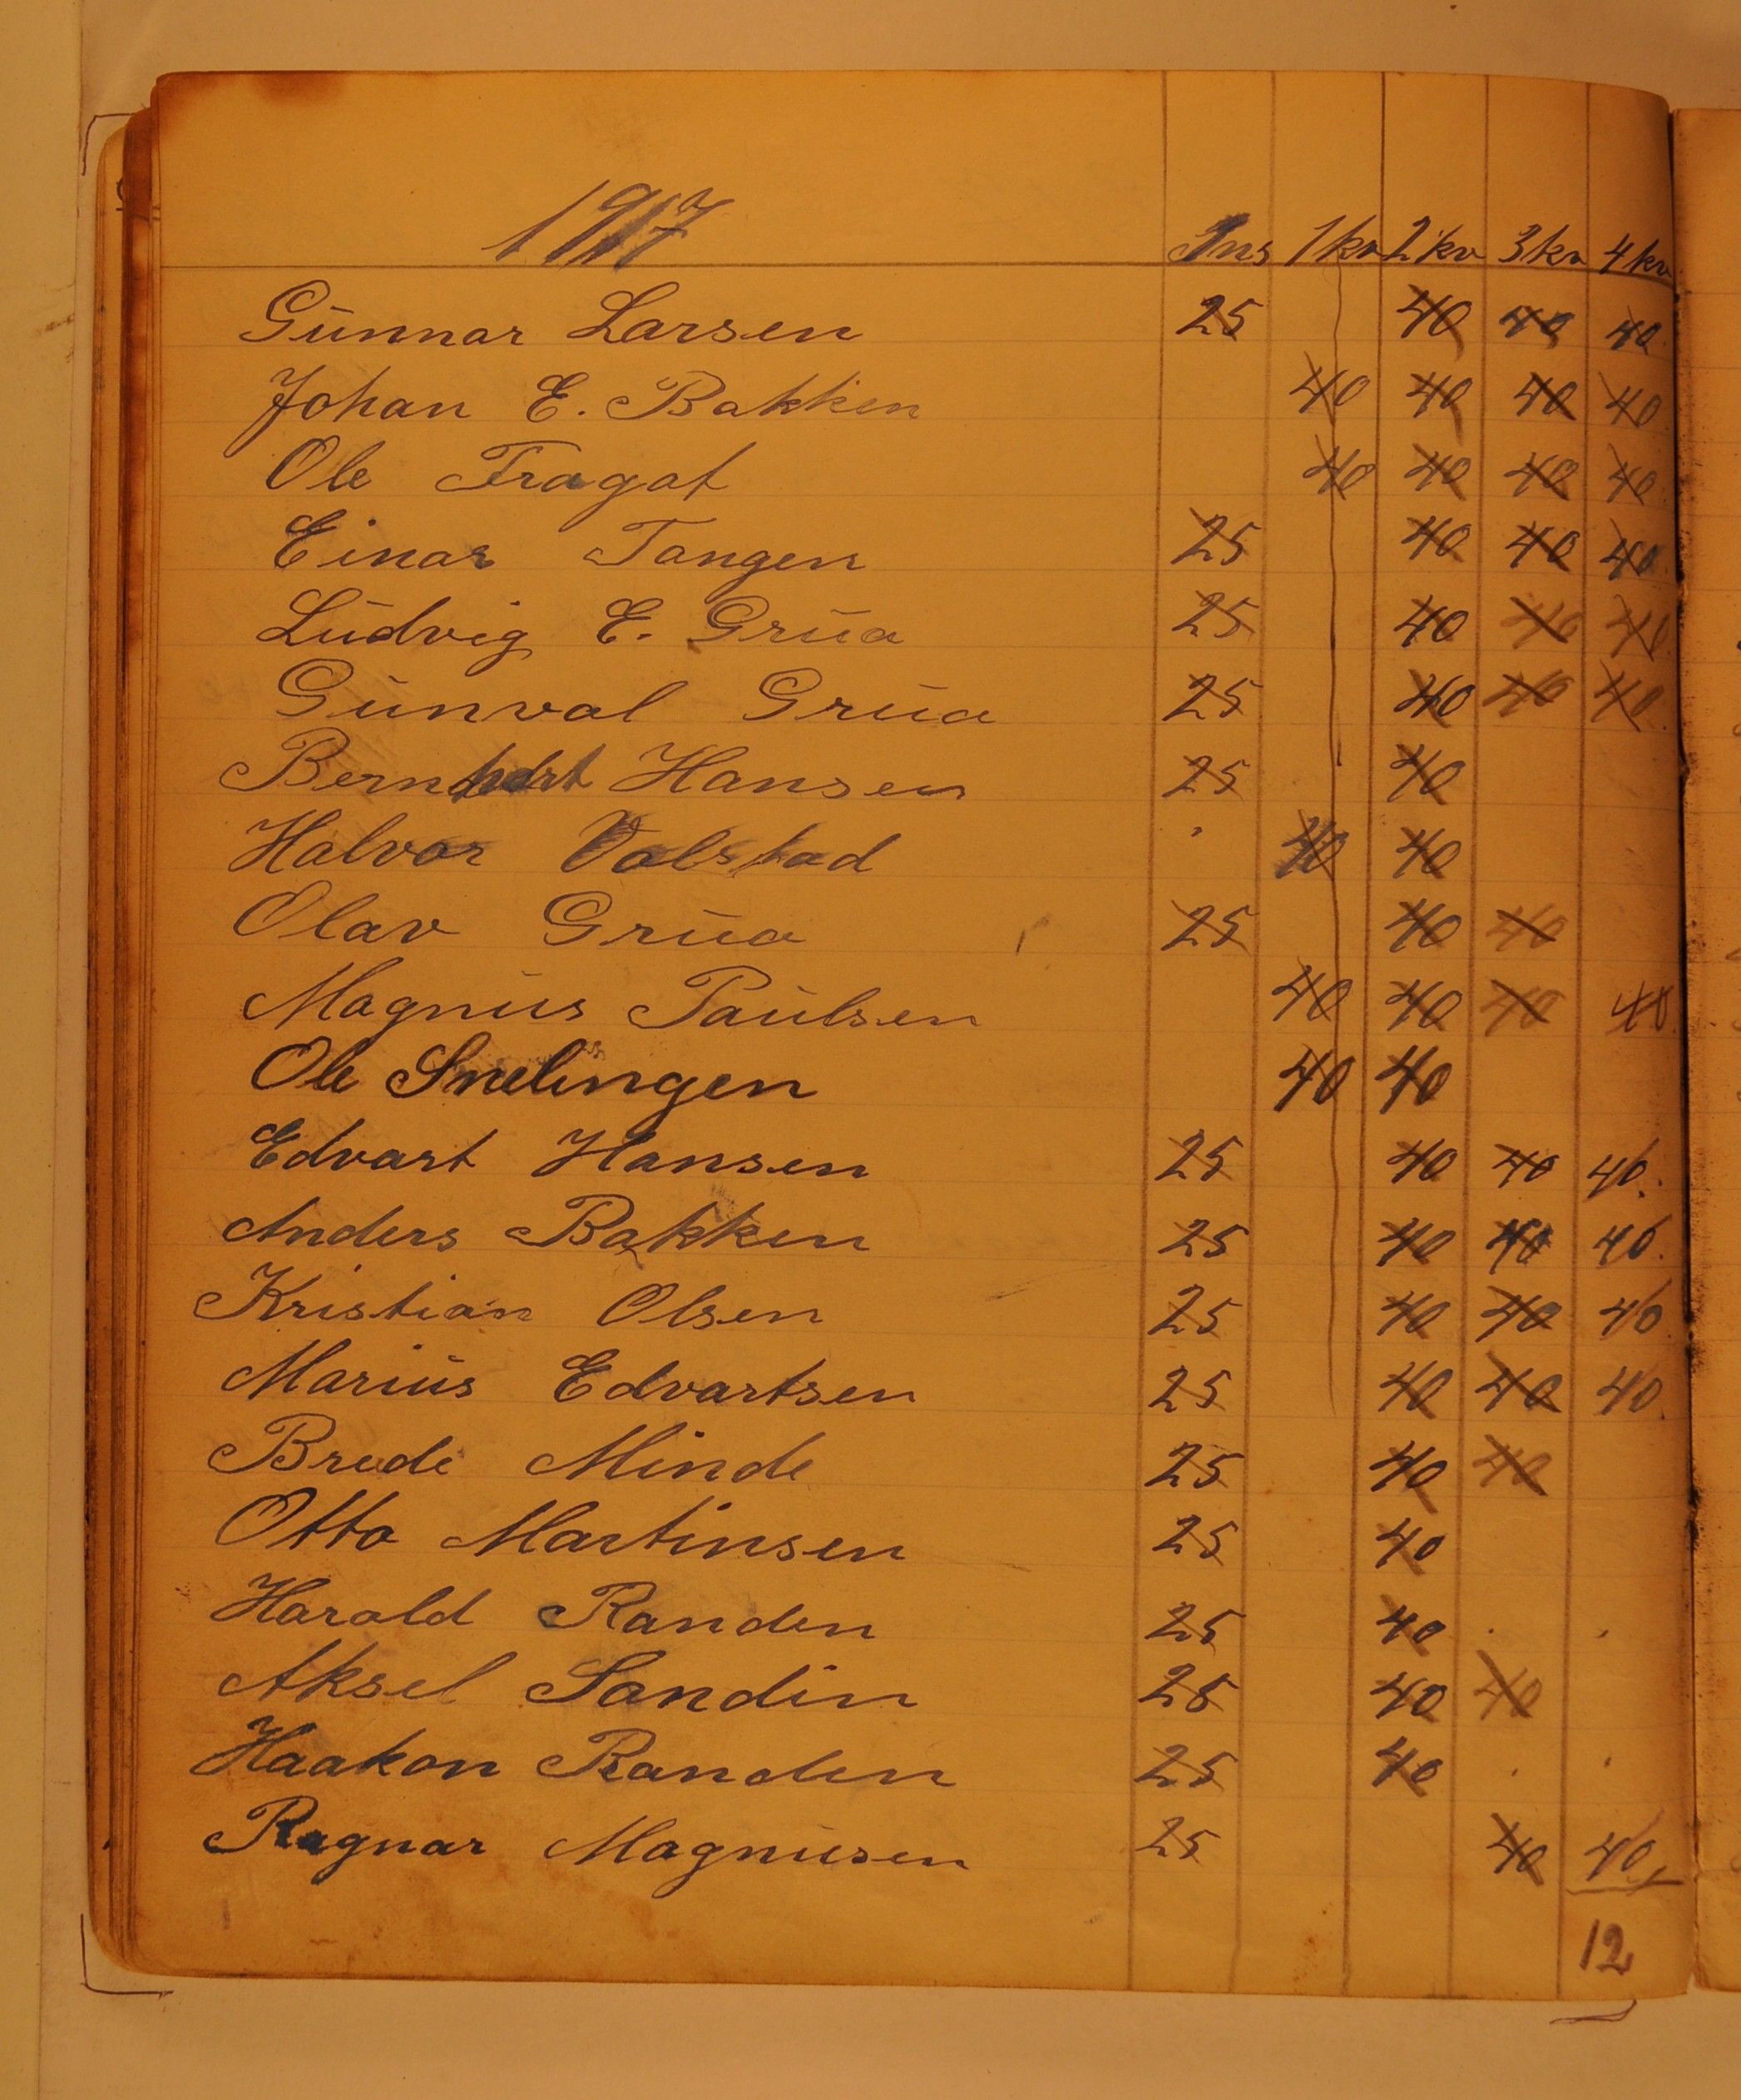 1917 Ins 1kv 2kv 3kv 4kv
Gunnar Larsen 25 40 40 40
Johan E. Bakken 40 40 40 40
Ole Fragat 40 40 40 40
Einar Tangen 25 40 40 40
Ludvig E. Grua 25 40 40 40
Gunval Grua 25 40 40 40
Bernhart Hansen 25 40
Halvor Volstad 40 40
Olav Grua 25 40 40
Magnus Paulsen 40 40 40 40
Ole Snelingen 40 40
Edvart Hansen 25 40 40 40.
Anders Bakken 25 40 40 40.
Kristian Olsen 25 40 40 40
Marius Edvartsen 25 40 40 40.
Brede Minde 25 40 40
Otto Martinsen 25 40
Harald Randen 25 40
Aksel Sandin 25 40 40
Haakon Randen 25 40
Ragnar Magnusen 25 40 40
12